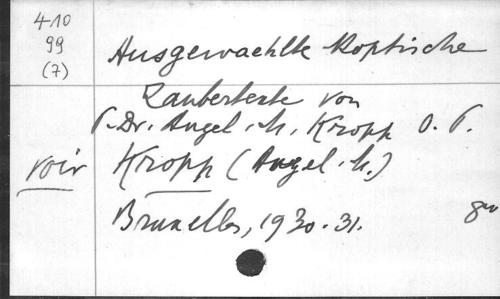 410
99
(7)
Ausgewaehlte Koptische
Zaubertexte von
P. Dr. Angel. M. Kropp O. P.
voir Kropp (Angel. M.)
Bruxelles, 1930-31.